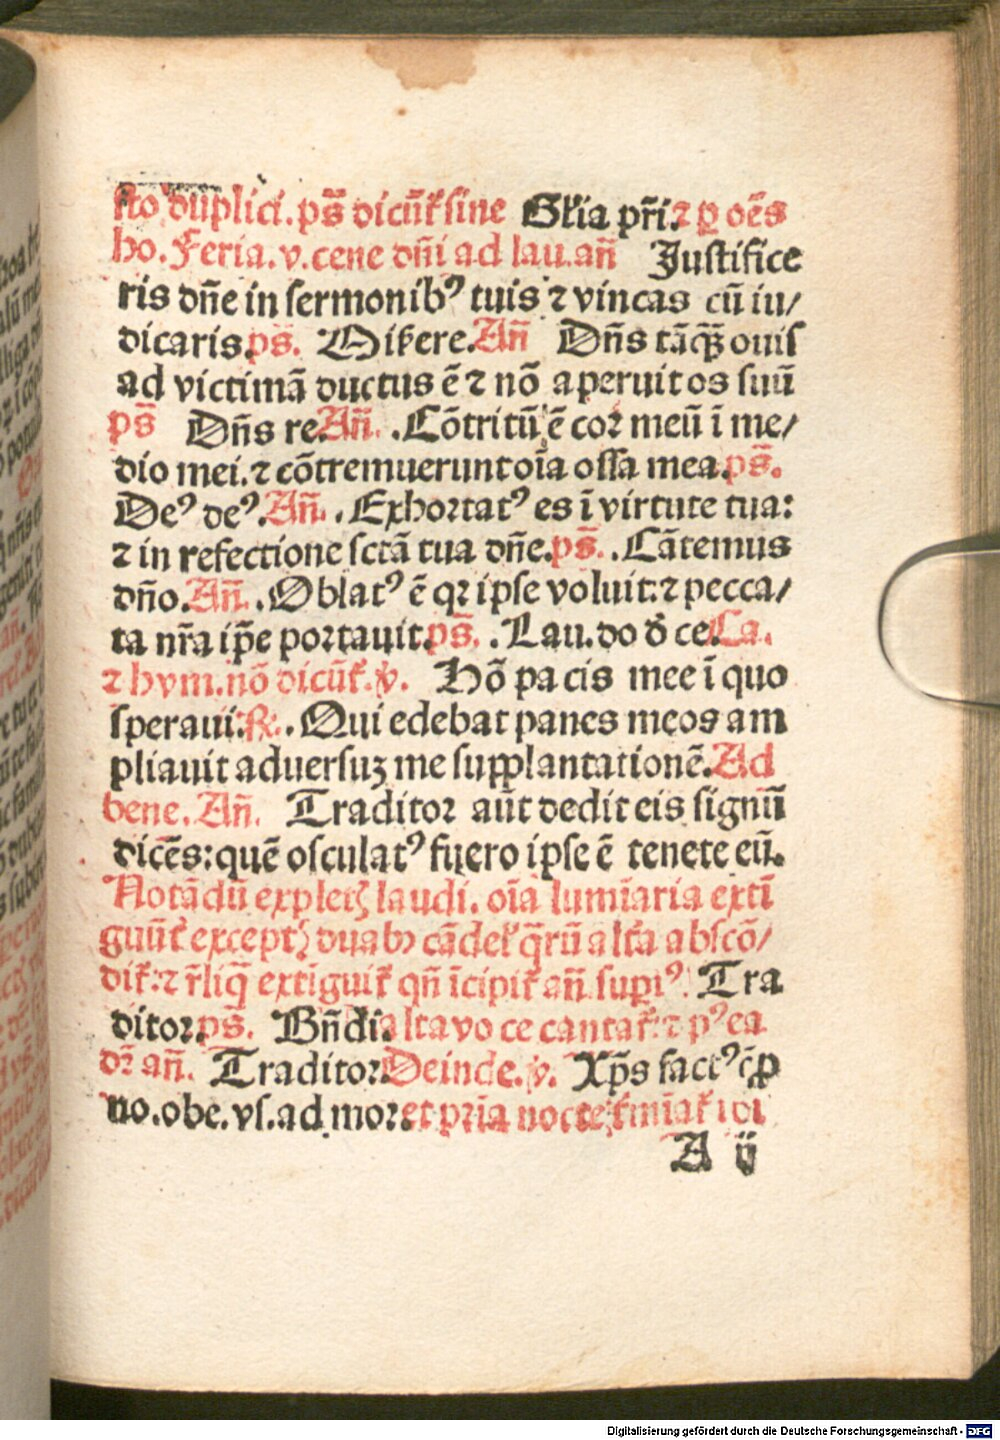 sto duplici. ps̄ dicūt̉ sine Gl̓ia pr̄i. ⁊ ꝑ oēs
ho. Feria. v. cene dn̄i ad lau. an̄ Justifice
ris dn̄e in sermonibꝰ tuis ⁊ vincas cū iu/
dicaris. ps̄. Mis̓ere. An̄ Dn̄s tāꝙ̄ ouis
ad victimā ductus ē ⁊ nō aperuit os suū
ps̄ Dn̄s re. An̄. Cōtritū ē coꝛ meū ī me/
dio mei. ⁊ cōtremuerunt oīa ossa mea. ps̄.
Deꝰ deꝰ. An̄. Exhoꝛtatꝰ es ī virtute tua:
⁊ in refectione sctā tua dn̄e. ps̄. Cātemus
dn̄o. An̄. Oblatꝰ ē qꝛ ipse voluit: ⁊ pecca/
ta nr̄a ip̄e poꝛtauit. ps̄. Lau. do d̓ ce. Ca.
⁊ hym. nō dicūt̉. ℣. Hō pacis mee ī quo
speraui. ℟. Qui edebat panes meos am
pliauit aduersuꝫ me supplantationē. Ad
bene. An̄. Traditoꝛ aūt dedit eis signū
dicēs: quē osculatꝰ fuero ipse ē tenete eū.
Notādū expletꝭ laudi. oīa lumīaria extī
guūt̉ exceptꝭ duabꝫ cādel̓ q̄rū alt̓a abscō/
dit̉: ⁊ r̓liq̄ extīguit̉ qn̄ īcipit̉ an̄. supiꝰ. Tra
ditoꝛ. ps̄. Bn̄dc̄i alta voce cantat̉: ⁊ pꝰea
dꝛ̄ an̄. Traditoꝛ. Deinde. ℣. Xp̄s factꝰ ē ꝓ
no. obe. vs. ad moꝛ. et pꝛīa nocte t̓mīat̉ ibi
A ij
Digitalisierung gefördert durch die Deutsche Forschungsgemeinschaft - DFG